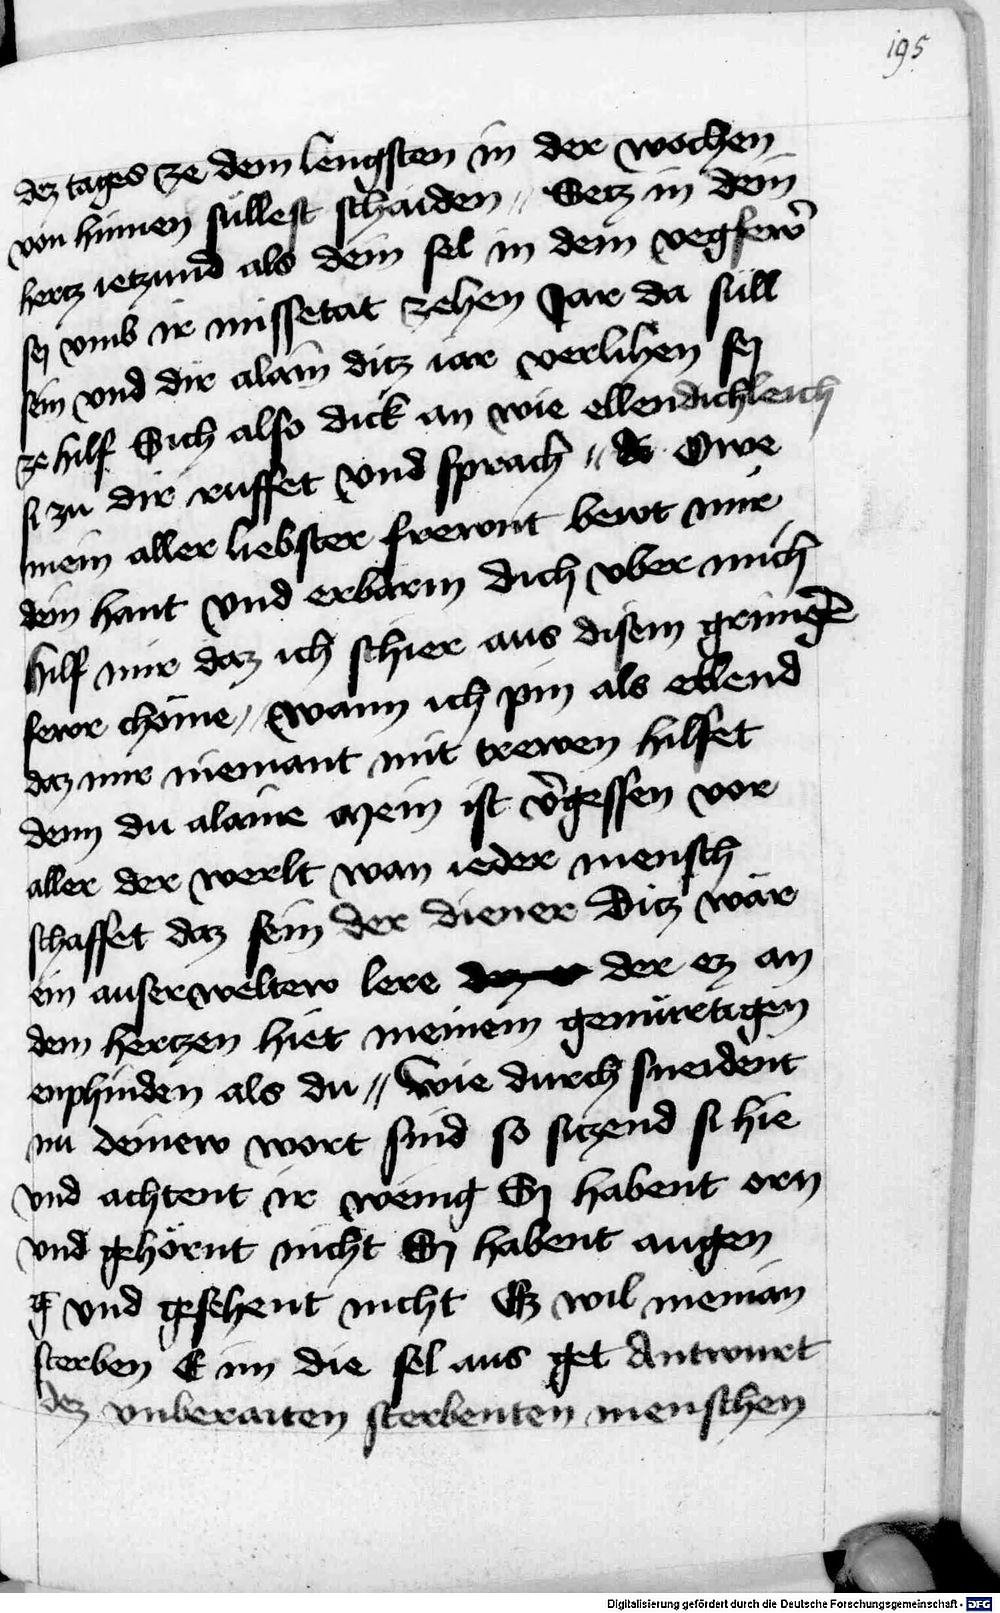 195
dez tages ze dem lengsten in der wochen
von hinnen süllest schaiden // Setz in dein
hertz ietzund als dein sel in dem vegfewr
sej vmb ir missetat zehen Jar da süll
sein vnd dir alain ditz iar verlihen sej
ze hilf Sich also dick an wie ellendichleich
si zu dir ruffet vnd sprach // Owe
mein aller liebster frewnt bewt mir
dein hant vnd erbarm dich vber mich
hilf mir daz ich schier aus disem grimigē
fewr chöme // wann ich pin als ellend
daz mir niemant mit trewen hilfet
denn du alaine Mein ist v̄gessen vor
aller der werlt wan ieder mensch
schaffet daz sein der diener Ditz wär
ein auserweltew lere der ez an
dem hertzen hiet meinem gemürtigen
enphinden als du // Wie durch sneident
nu deinew wort sind so sitzend si hie
vnd achtent ir wenig Sj habent orn
vnd gehörnt nicht Sj habent augen
vnd gesehent nicht Ez wil nieman
sterben E im die sel aus get Antwurt
dez vnberaiten sterbenten menschen
Digitalisierung gefördert durch die Deutsche Forschungsgemeinschaft - DFG